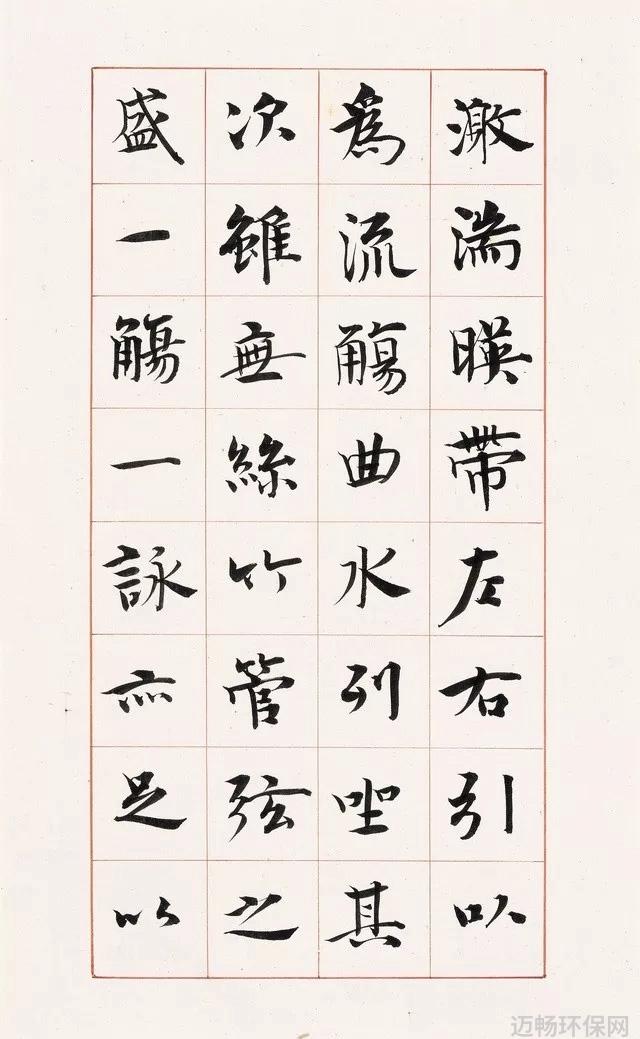 激湍暎帶左右引以
為流觴曲水列坐其
次雖無絲竹管弦之
盛一觴一詠亦足以
迈畅环保网